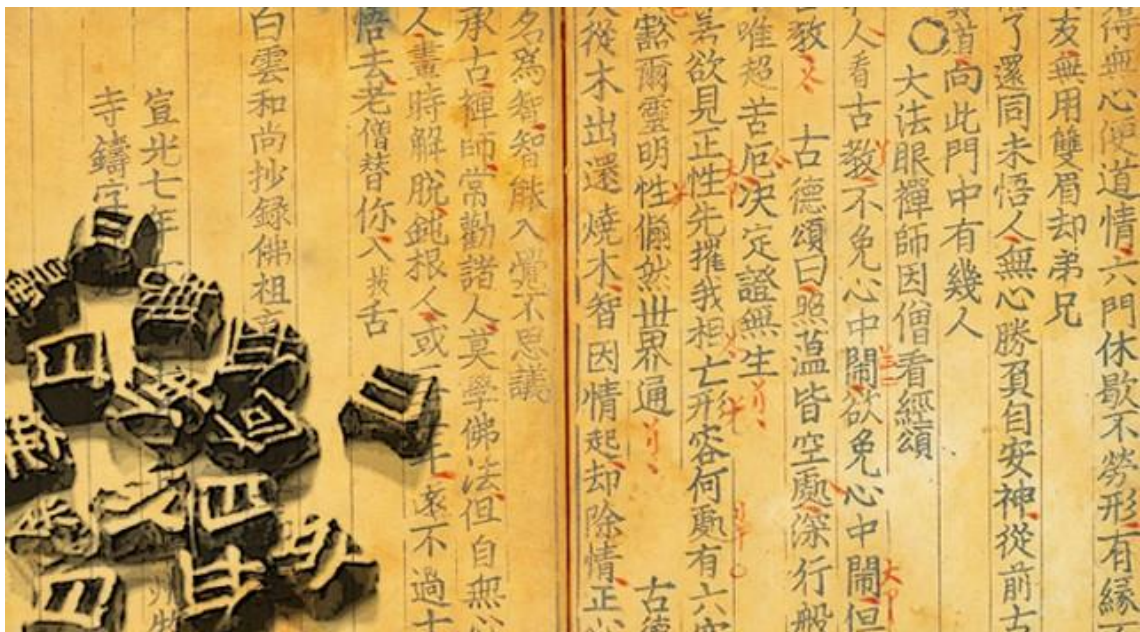 得無心便道情六門休歇不勞形有緣
友無用雙眉却弟兄
了還同未悟人無心勝負自安神從前古
道向此門中有幾人
○大法眼禪師因僧看經頌
人看古教不免心中鬧欲免心中鬧但
教 古德頌曰照蘊皆空處深行般
唯超苦厄決定證無生
欲見正性先摧我相亡形容何處有六
豁爾靈明性翛然世界通 古德
從木出還燒木智因情起却除情正
名爲智智能入覺不思議
承古禪師常勸諸人莫學佛法但自無心
人畫時解脫鈍根人或 遠不過十
悟去老僧替你入拔舌
白雲和尚抄録佛祖
宣光七年
寺鑄字